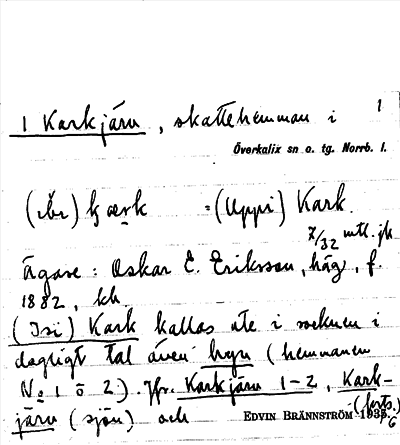 1 Karkjärv, skattehemman i 1
Överkalix sn o. tg. Norrb. l.
kærk = (Uppi) Kark.
7/32 mtl. jk
Ägare: Oskar E. Eriksson, häg, f.
1882, kh.
(Isi) Kark kallas ute i socknen i
dagligt tal även byn (hemmanen
No 1 o 2). Jfr. Karkjärv 1-2, Kark-
järv (sjön) och (forts.)
EDVIN BRÄNNSTRÖM 193